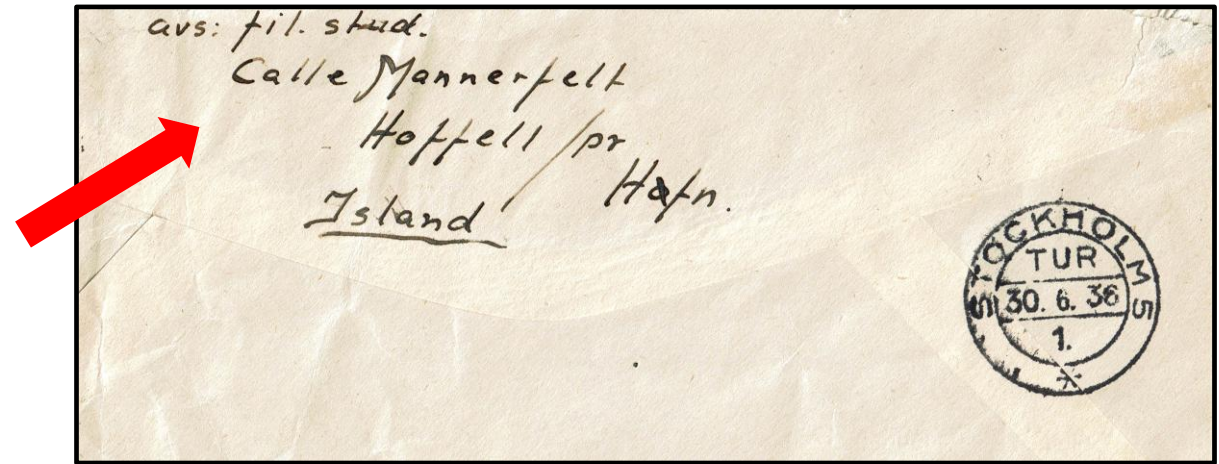 avs: fil. stud.
Calle Mannerfelt
Hoffell /pr
Hafn.
Island
STOCKHOLM 5
TUR
30. 6. 36
1.
*